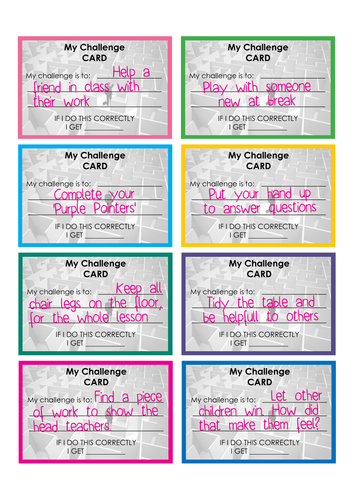 My Challenge
CARD
My challenge is to: Help a
friend in class with
their work
IF I DO THIS CORRECTLY
I GET
My Challenge
CARD
My challenge is to:
Play with someone
new at break
IF I DO THIS CORRECTLY
I GET
My Challenge
CARD
My challenge is to:
Complete your
'Purple Pointers'
IF I DO THIS CORRECTLY
I GET
My Challenge
CARD
My challenge is to:
Put your hand up
to answer questions
IF I DO THIS CORRECTLY
I GET
My Challenge
CARD
My challenge is to: Keep all
chair legs on the floor,
for the whole lesson
IF I DO THIS CORRECTLY
I GET
My Challenge
CARD
My challenge is to:
Tidy the table and
be helpfull to others
IF I DO THIS CORRECTLY
I GET
My Challenge
CARD
My challenge is to: Find a piece
of work to show the
head teachers
IF I DO THIS CORRECTLY
I GET
My Challenge
CARD
My challenge is to: Let other
children win. How did
that make them feel?
IF I DO THIS CORRECTLY
I GET